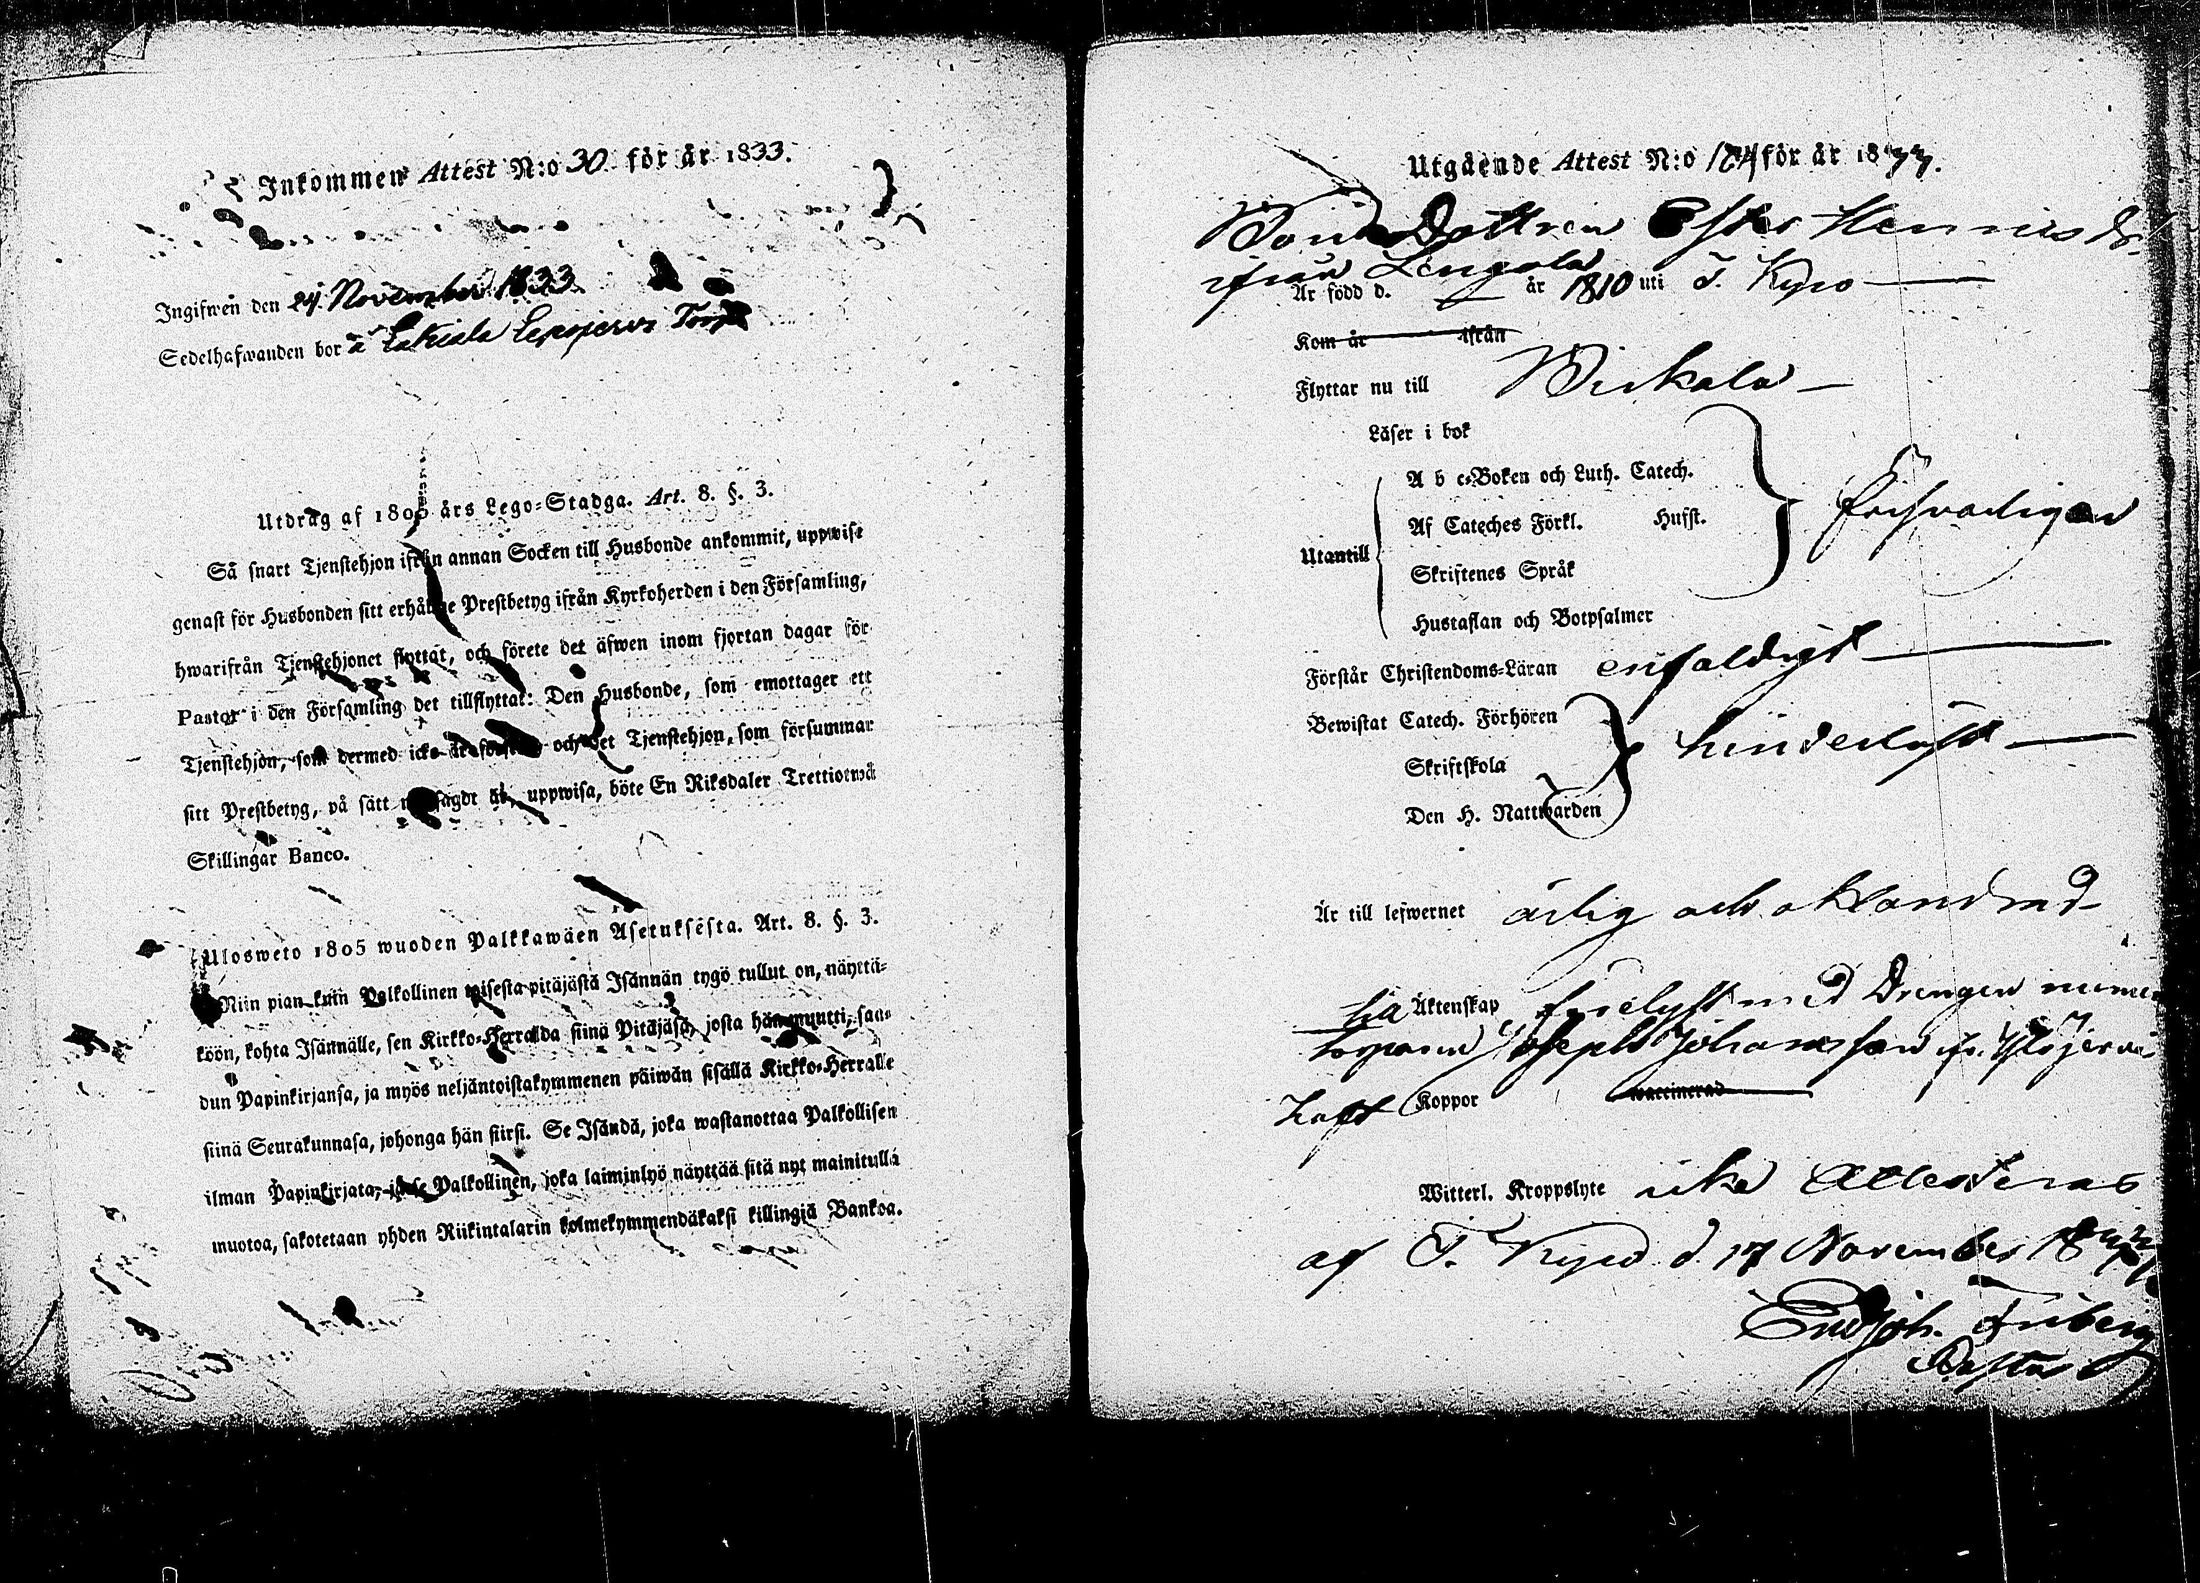 Inkommen Attest N:o 30 för år 1833.
Ingifwen den 24 November 1833
Sedelhafwanden bor å Torp
Utdrag af 1805 års Lego-Stadga. Art. 8. §. 3.
Så snart Tjenstehjon ifrån annan Socken till Husbonde ankommit, uppwise
genast för Husbonden sitt erhållne Prestbetyg ifrån Kyrkoherden i den Församling,
hwarifrån Tjenstehjonet flyttat, och förete det äfwen inom fjortan dagar för
Pastor i den Församling det tillflyttat: Den Husbonde, som emottager ett
Tjenstehjon, som dermed icke är försedt och det Tjenstehjon, som försummar
sitt Prestbetyg, på sätt nu sagdt är, uppwisa, böte En Riksdaler Trettiotwå
Skillingar Banco.
Ulosweto 1805 wuoden Palkkawäen Asetuksesta. Art. 8. §. 3.
Niin pian kuin Palkollinen toisesta pitäjästä Isännän tygö tullut on, näyttä-
köön, kohta Isännälle, sen Kirkko-Herralda siinä Pitäjäsä, josta hän muutti, saa-
dun Papinkirjansa, ja myös neljäntoistakymmenen päiwän sisällä Kirkko-Herralle
siinä Seurakunnasa, johonga hän siirsi. Se Isändä, joka wastanottaa Palkollisen
ilman Papinkirjata, ja se Palkollinen, joka laiminlyö näyttää sitä nyt mainitulla
muotoa, sakotetaan yhden Riikintalarin kolmekymmendäkaksi killingiä Bankoa.
Utgående Attest N:o för år 1833.
Bonde Dottren Ester Hennriksdr
ifrån
Är född d. — år 1810 uti T. Kyro
Kom år ifrån
Flyttar nu till Birkala
Läser i bok
A b c-Boken och Luth. Catech.
Af Cateches Förkl. Husst.
Utantill
Skriftenes Språk
försvarligen
Hustaflan och Botpsalmer
Förstår Christendoms-Läran enfaldigt
Bewistat Catech. Förhören
Skriftskola
hinderlöst
Den H. Nattwarden
Är till lefwernet ärlig och oklandrad
till Äktenskap, förelyst med Drengen numera
torparen Joseph Johansson ifr. Ylöjärvi
Haft Koppor waccinerad
Witterl. Kroppslyte icke Attesteras
af T. Kyro d. 17 November 1833
Joh. Friberg
Pastor